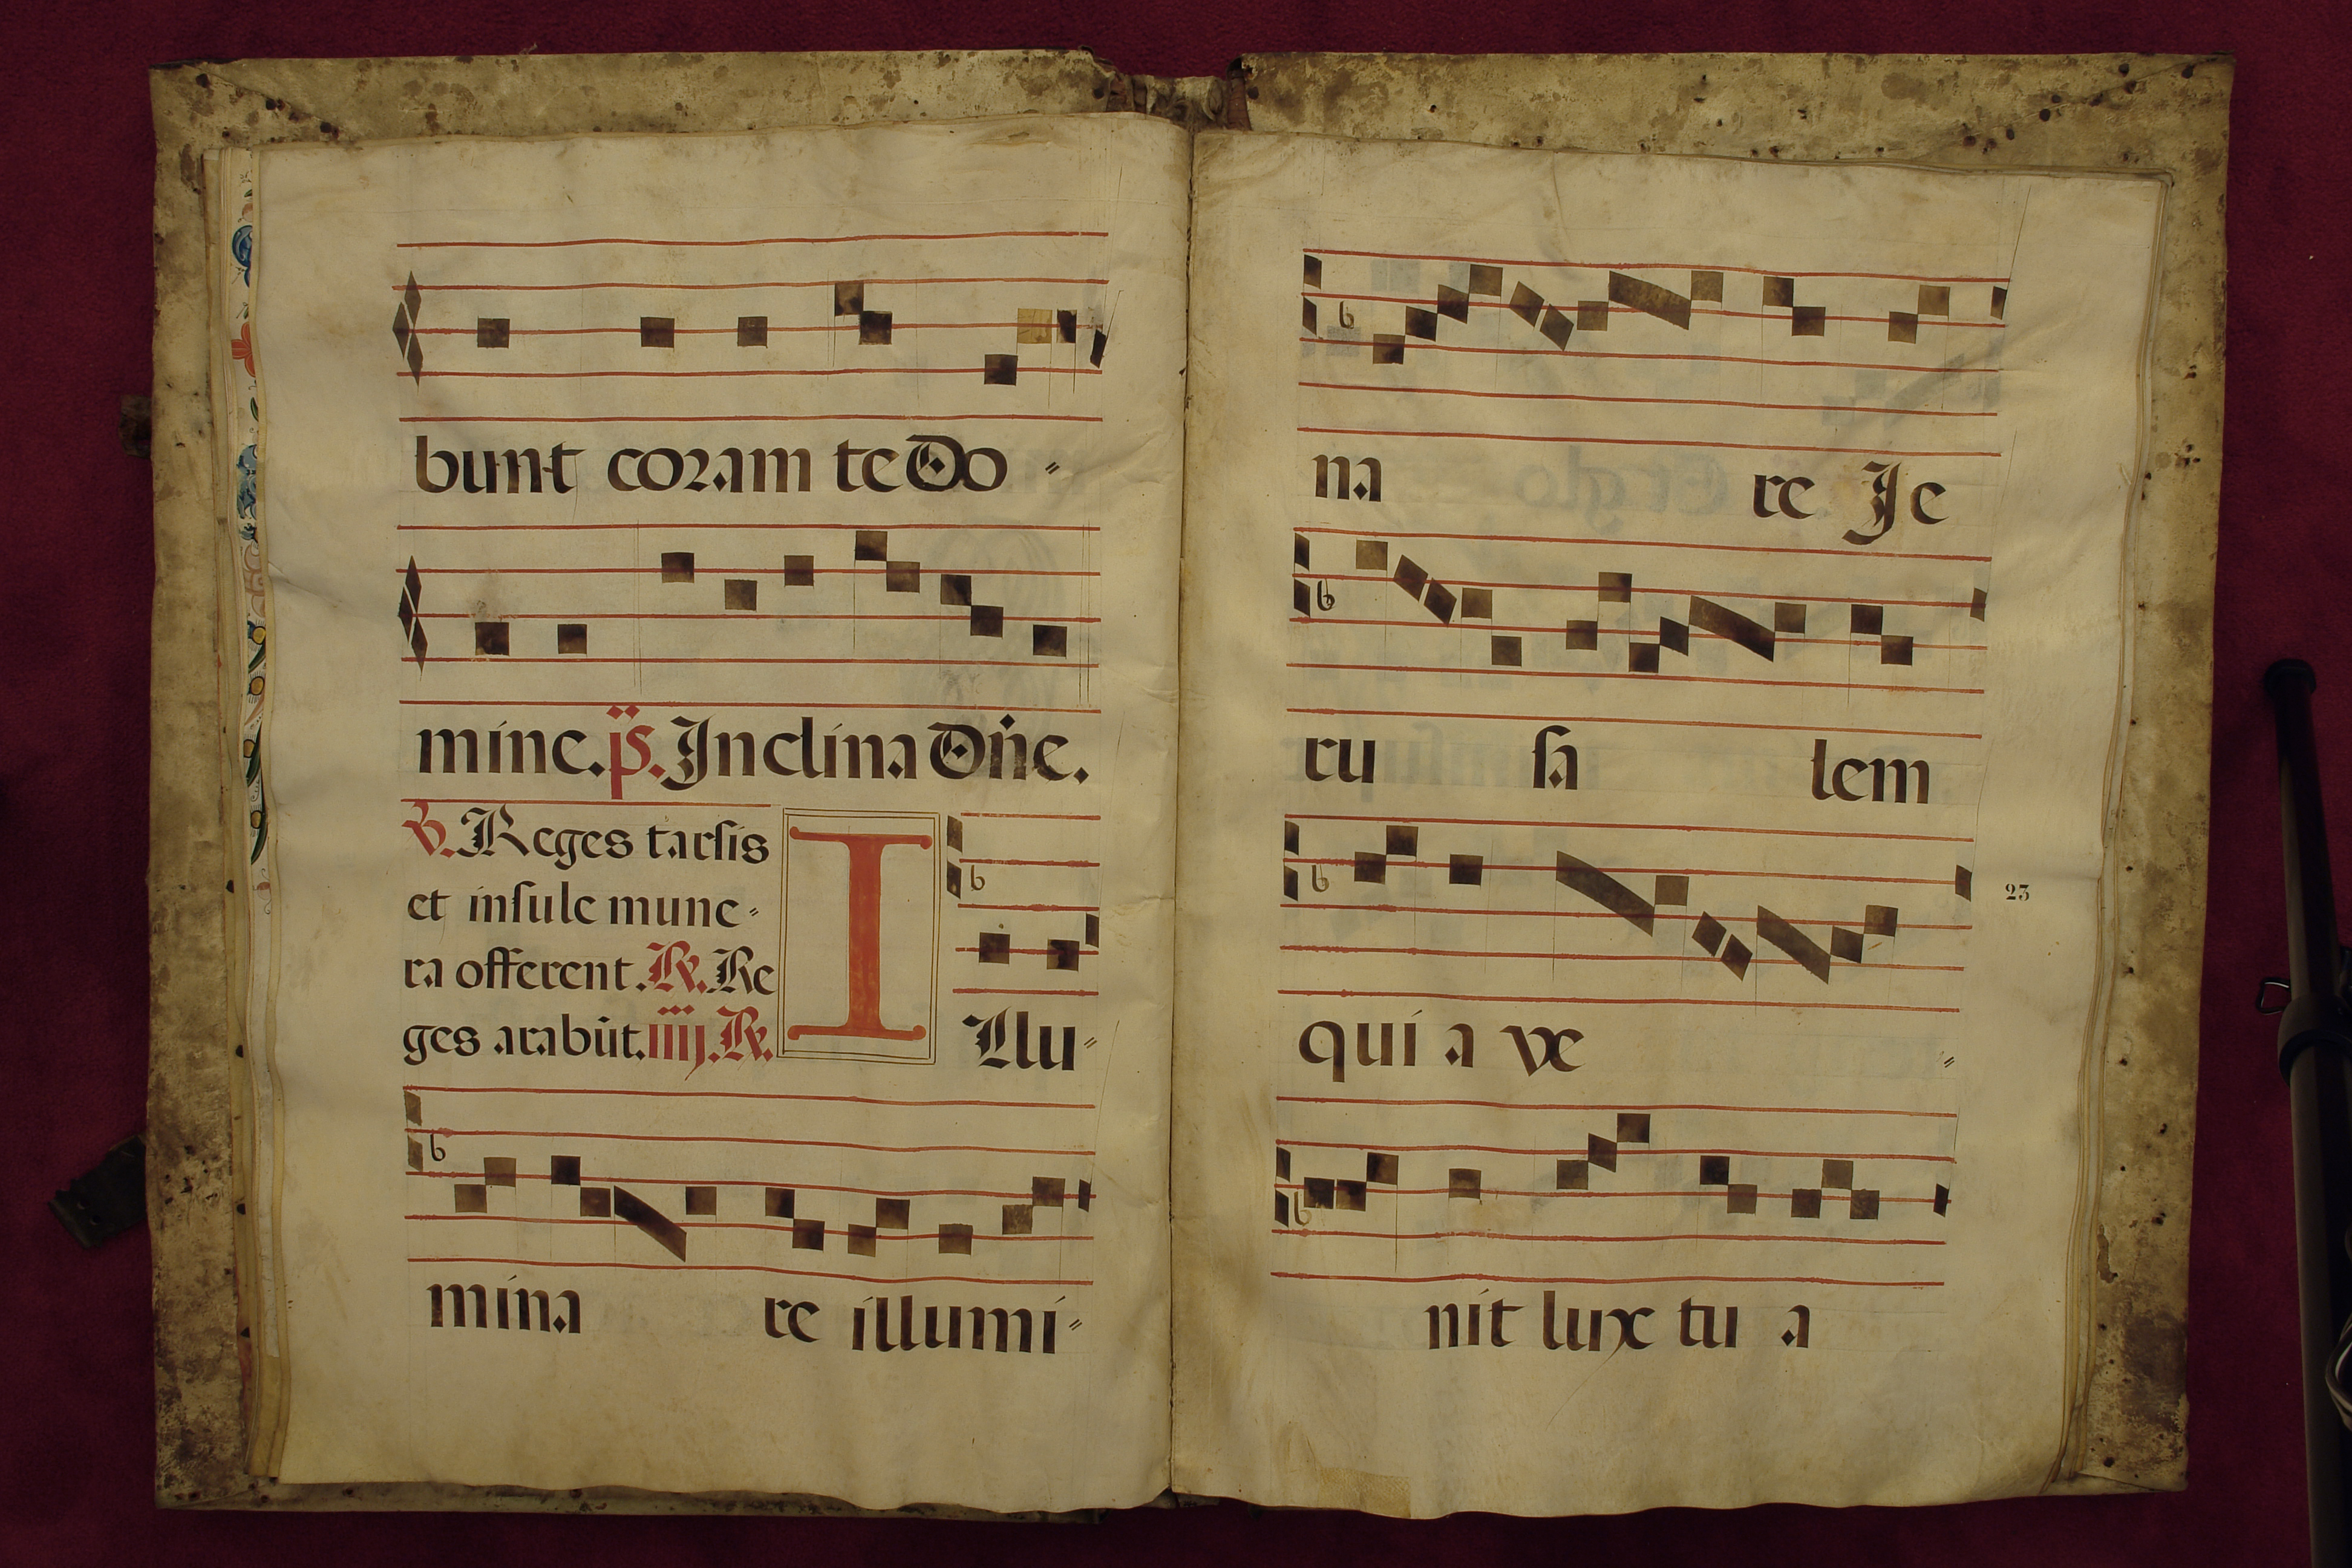 bunt coram te Do⸗
mine. ps. Inclina Dñe.
V. Reges tarsis
et insule mune⸗
ra offerent. R. Re
ges arabūt. iiij. R.
Illu⸗
mina re illumi⸗
na re Je
ru sa lem
23
qui a ve ⸗
nit lux tu a